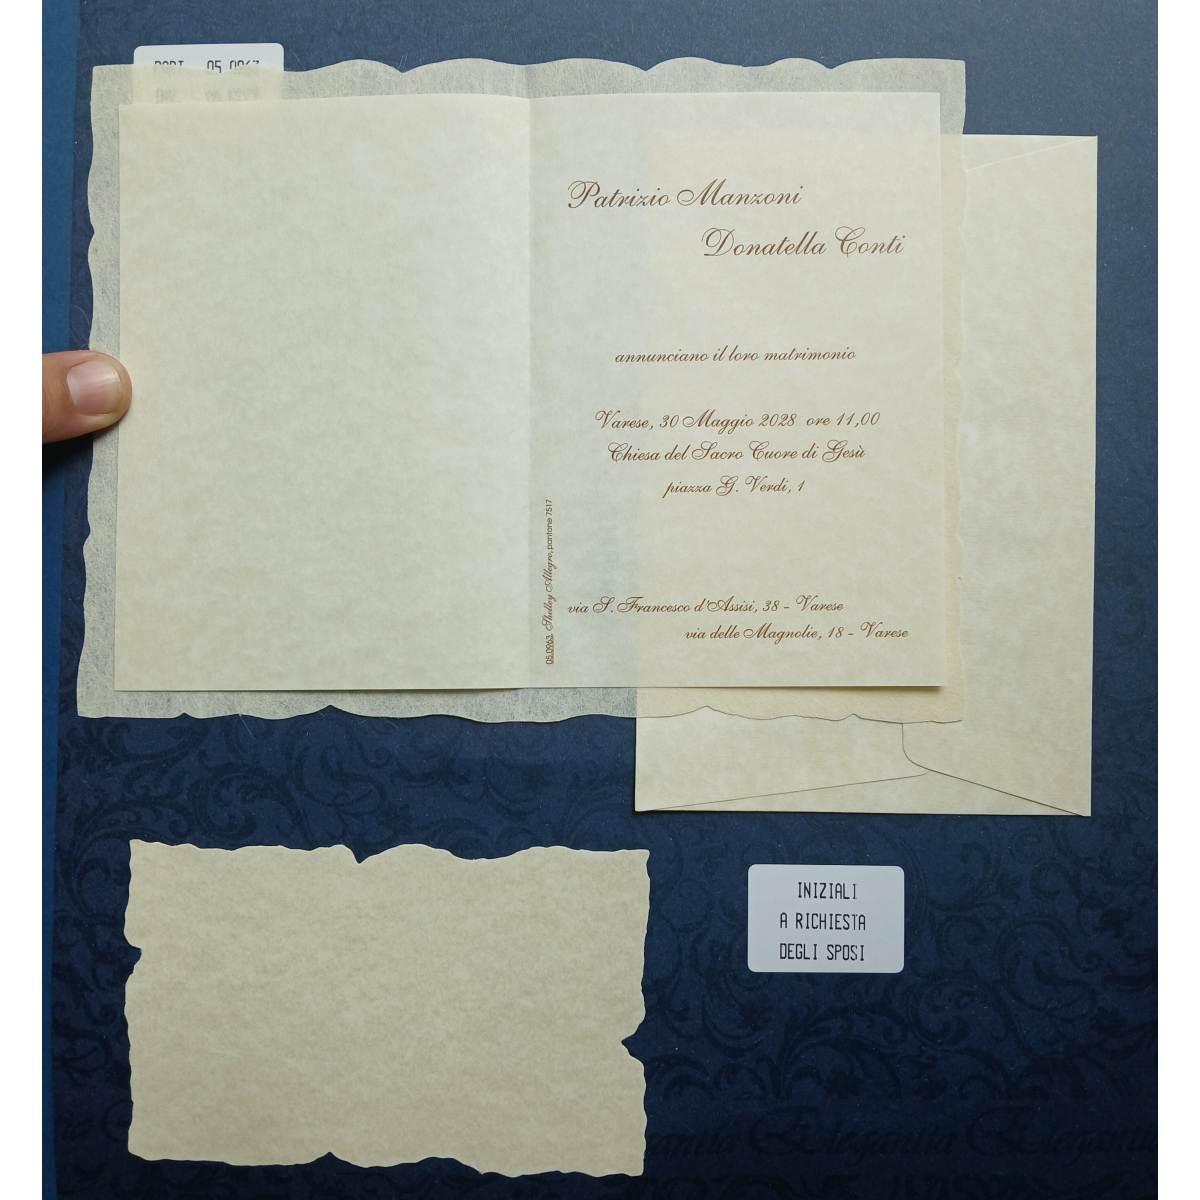 05.0963
Patrizio Manzoni
Donatella Conti
annunciano il loro matrimonio
Varese, 30 Maggio 2028 ore 11,00
Chiesa del Sacro Cuore di Gesù
piazza G. Verdi, 1
05.0963, Shelley Allegro, pantone 7517
via S. Francesco d'Assisi, 38 - Varese
via delle Magnolie, 18 - Varese
INIZIALI
A RICHIESTA
DEGLI SPOSI
Elegantia Elegantia